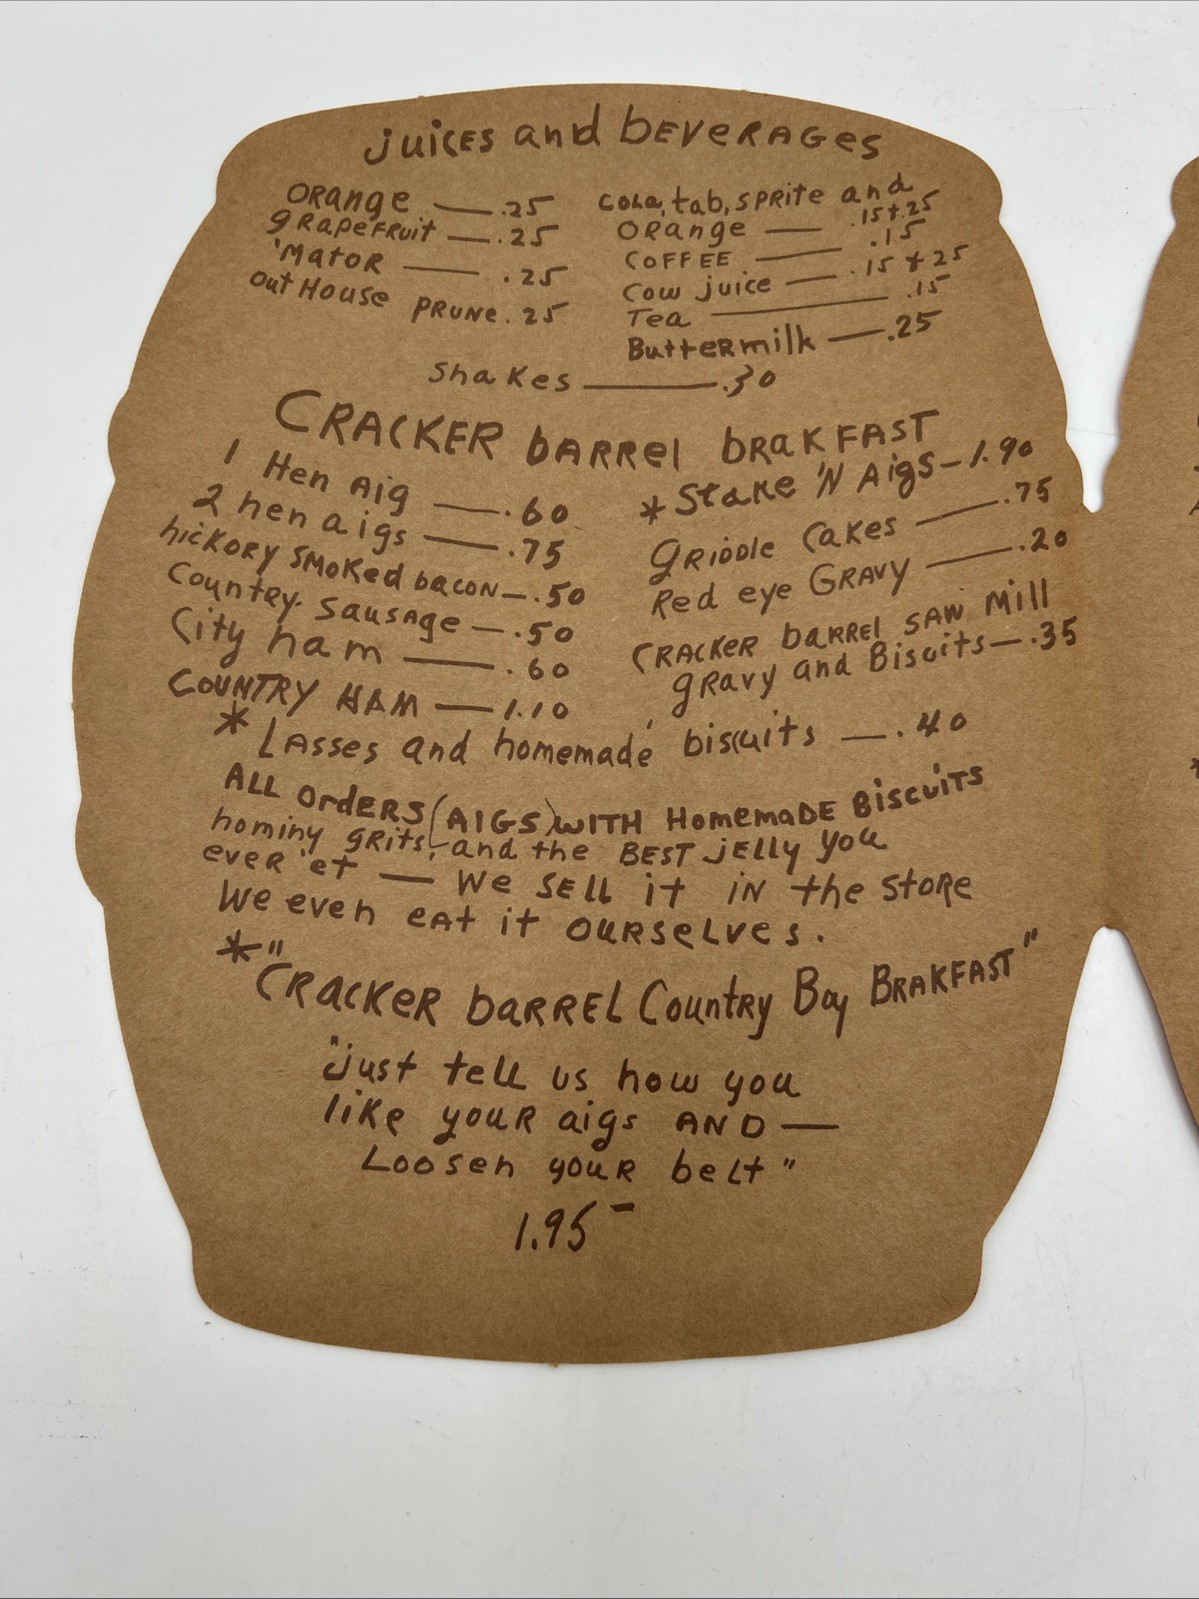 juices and beverages
Orange — .25
grapefruit — .25
'Mator — .25
out House prune .25
cola, tab, sprite and
orange — .15 + .25
coffee — .15
cow juice — .15 + 25
Tea — .15
Buttermilk — .25
shakes — .30
CRACKER barrel brakFAST
1 Hen Aig — .60
2 hen aigs — .75
hickory smoked bacon — .50
Country sausage — .50
City ham — .60
COUNTRY HAM — 1.10
*Stake 'N Aigs — 1.90
griddle cakes — .75
Red eye GRAVY — .20
CRACKER barrel saw mill
gravy and Biscuits — .35
* Lasses and homemade biscuits — .40
ALL orders (AIGS) WITH Homemade Biscuits
hominy grits, and the BEST jelly you
ever 'et — We sell it in the store
We even eat it ourselves.
*"Cracker barrel Country Boy Brakfast"
"just tell us how you
like your aigs AND —
Loosen your belt"
1.95